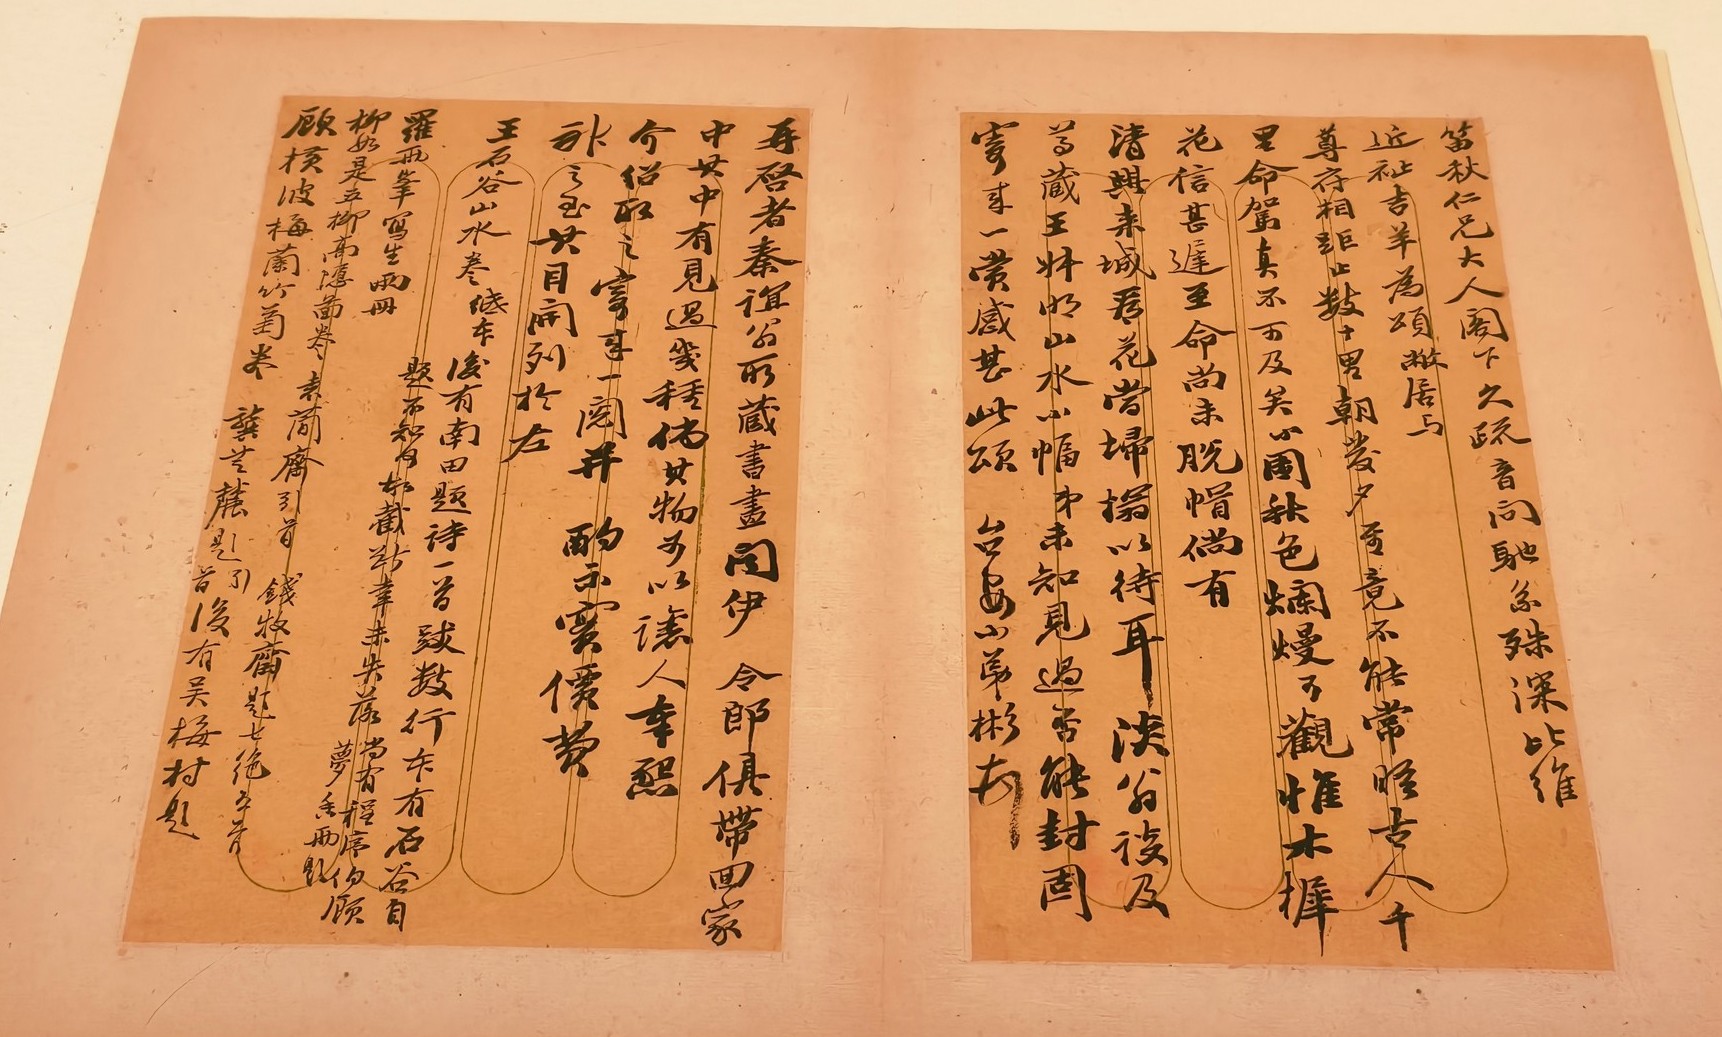 笛秋仁兄大人阁下久疏音问驰系殊深比维
近祉吉羊为颂敝居与
尊府相距止数十里朝发夕至竟不能常晤古人千
里命驾真不可及矣小園秋色烂熳可觀惟木樨
花信甚遲至命尚未脱帽倘有
清興来城看花當埽榻以待耳淡翁谈及
尊蔵王妹明山水小幅弟未知見過否能封固
寄来一赏感甚此颂 台安小弟彬頓
再啓者秦誼翁所蔵書畫闻伊 令郎俱帶回家
中其中有見過幾種倘其物可以讓人奉懇
介侣取之寄来一阅并 酌示實價费
神之至其目開列於左
王石谷山水卷纸本後有南田題诗一首跋数行本有石谷自
題不知何故截断幸未失落尚有程序伯顾
羅两峯寫生两冊 夢香两題
柳如是五柳高隐图卷袁简齋引首 錢牧齋題七绝五首
顾横波梅蘭竹菊卷 龔芝麓題引首後有吴梅村題